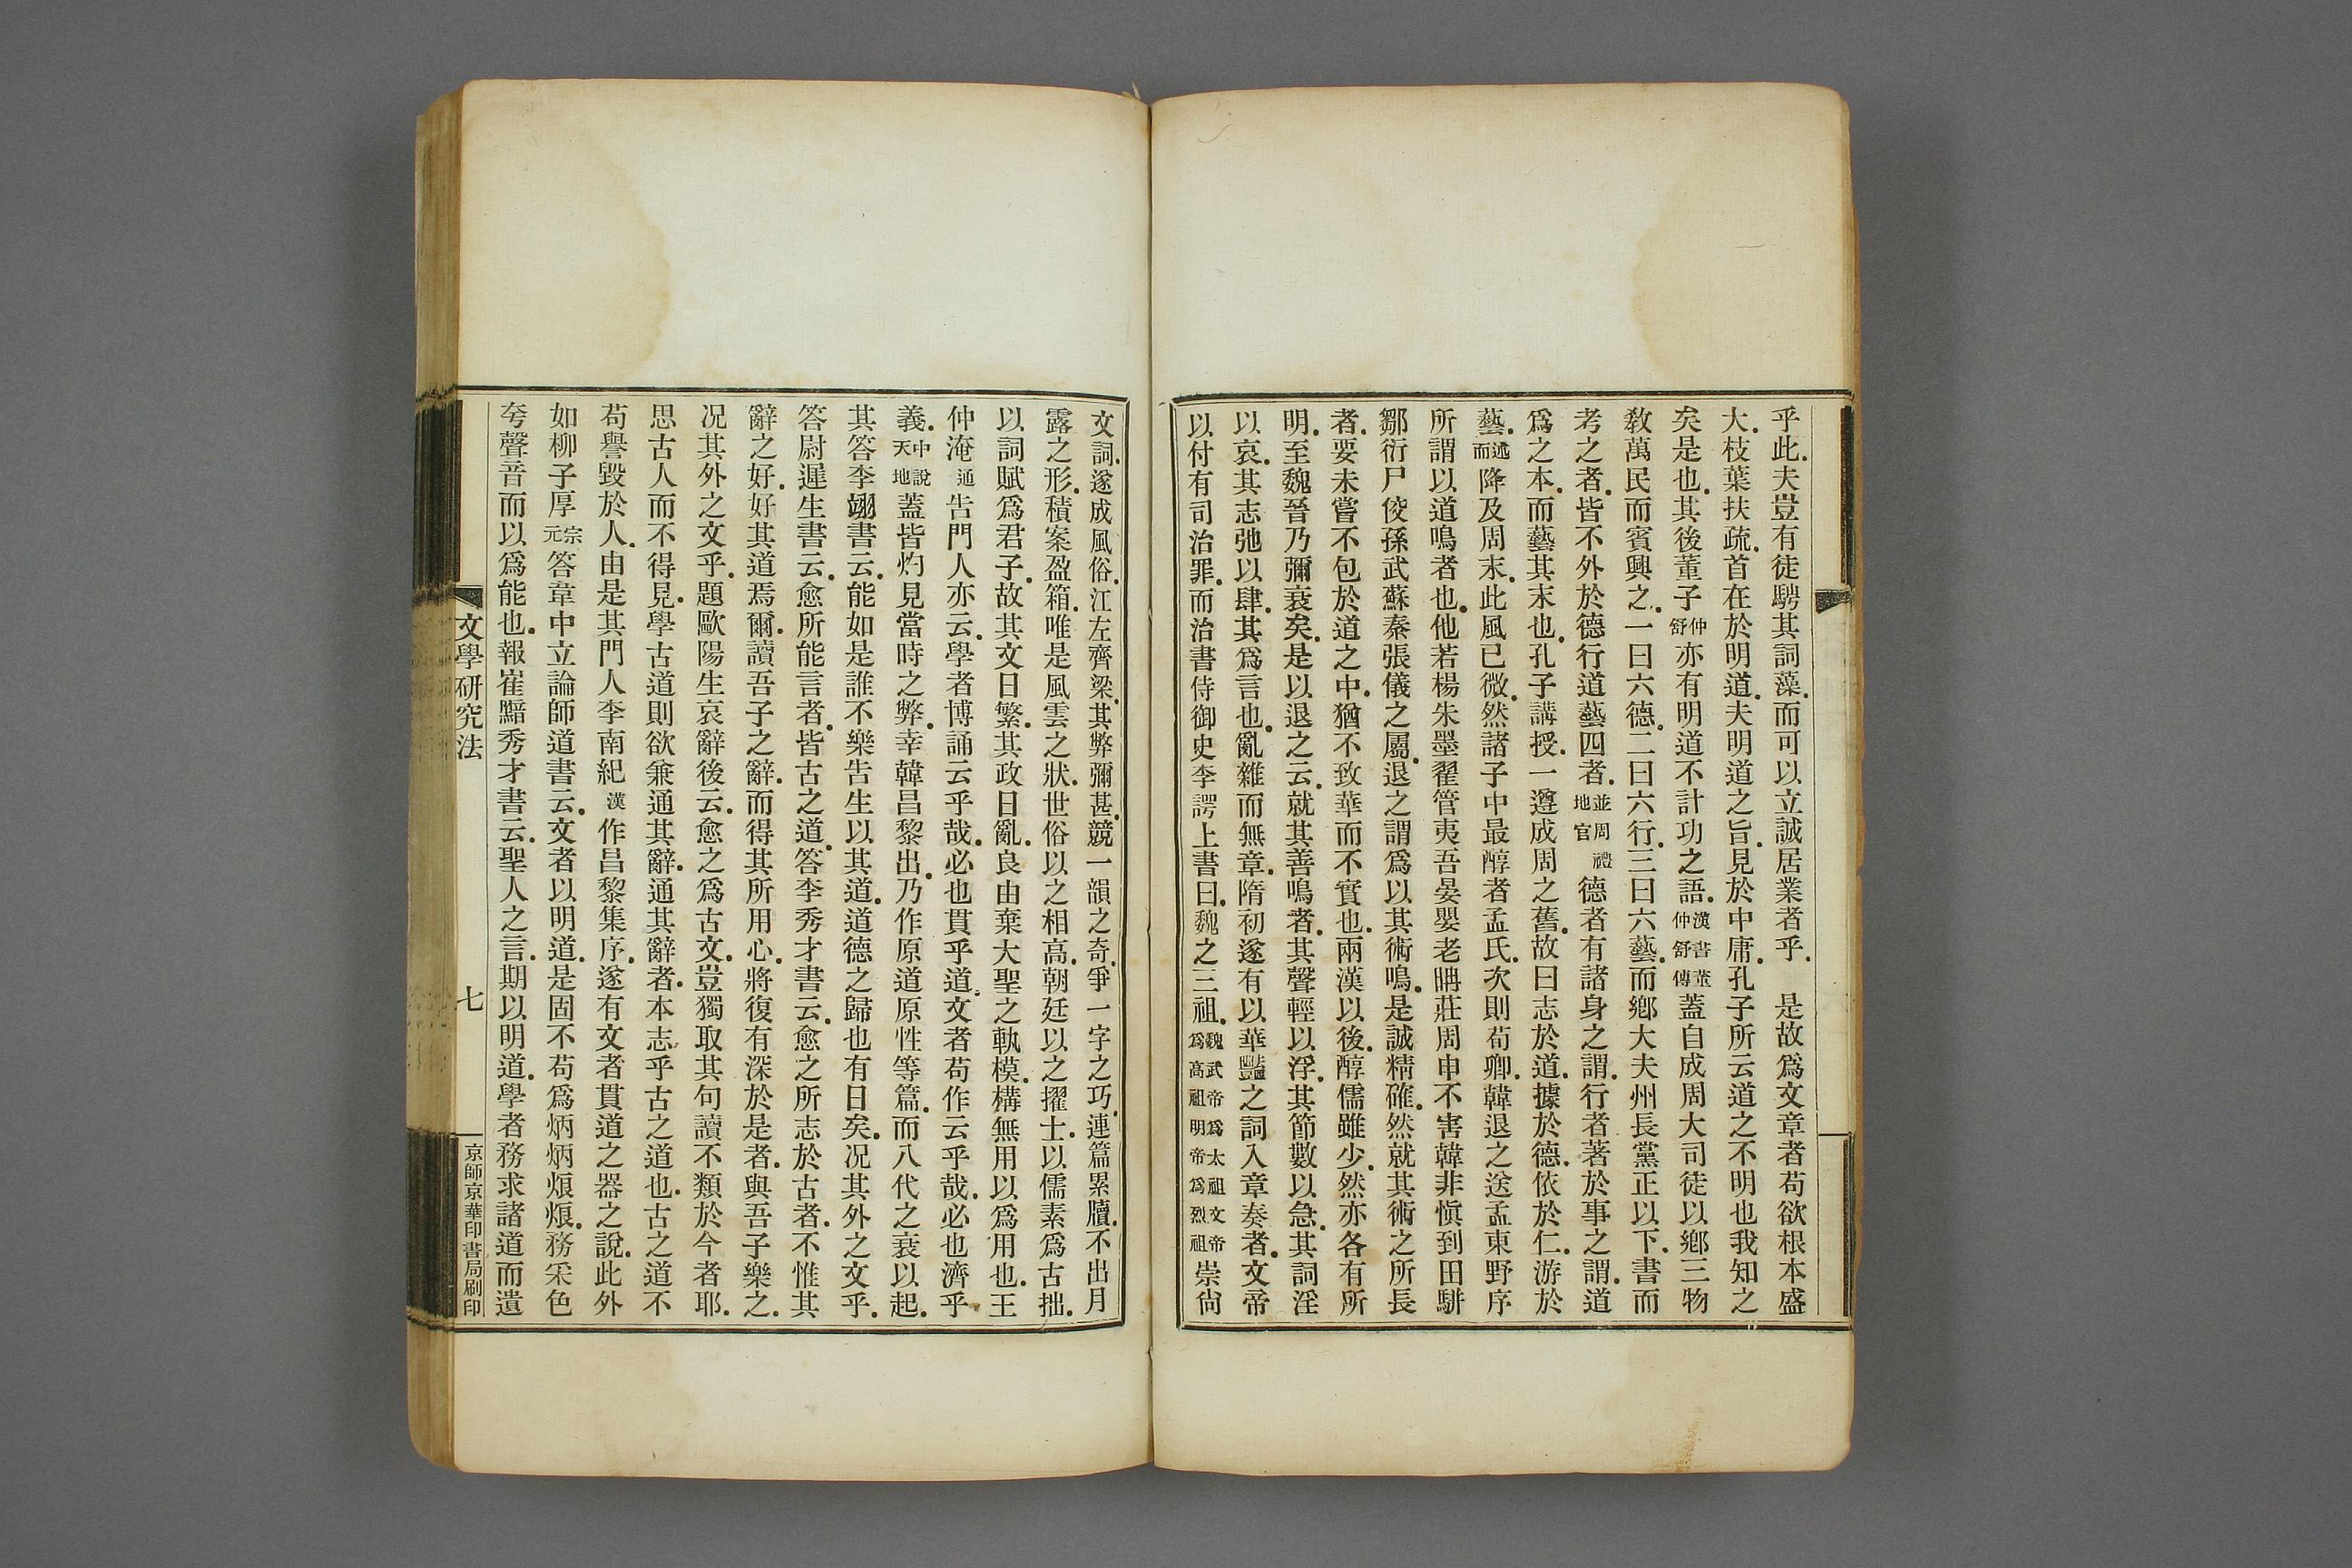 乎此.夫豈有徒騁其詞藻.而可以立誠居業者乎.　是故爲文章者苟欲根本盛
大.枝葉扶疏.首在於明道.夫明道之旨.見於中庸.孔子所云道之不明也我知之
矣是也.其後董子仲舒亦有明道不計功之語.漢書董仲舒傳蓋自成周大司徒以鄕三物
敎萬民而賓興之.一曰六德.二曰六行.三曰六藝.而鄕大夫州長黨正以下.書而
考之者.皆不外於德行道藝四者.並周禮地官德者有諸身之謂.行者著於事之謂.道
爲之本.而藝其末也.孔子講授.一遵成周之舊.故曰志於道.據於德.依於仁.游於
藝.述而降及周末.此風已微.然諸子中最醇者孟氏.次則荀卿.韓退之送孟東野序
所謂以道鳴者也.他若楊朱墨翟管夷吾晏嬰老聃莊周申不害韓非愼到田駢
鄒衍尸佼孫武蘇秦張儀之屬.退之謂爲以其術鳴.是誠精確.然就其術之所長
者.要未嘗不包於道之中.猶不致華而不實也.兩漢以後.醇儒雖少.然亦各有所
明.至魏晉乃彌衰矣.是以退之云.就其善鳴者.其聲輕以浮.其節數以急.其詞淫
以哀.其志弛以肆.其爲言也.亂雜而無章.隋初遂有以華豔之詞入章奏者.文帝
以付有司治罪.而治書侍御史李諤上書曰.魏之三祖.魏武帝爲太祖文帝爲高祖明帝爲烈祖崇尙
文詞.遂成風俗.江左齊梁.其弊彌甚.競一韻之奇.爭一字之巧.連篇累牘.不出月
露之形.積案盈箱.唯是風雲之狀.世俗以之相高.朝廷以之擢士.以儒素爲古拙.
以詞賦爲君子.故其文日繁.其政日亂.良由棄大聖之軌模.構無用以爲用也.王
仲淹通告門人亦云.學者博誦云乎哉.必也貫乎道.文者苟作云乎哉.必也濟乎
義.中說天地蓋皆灼見當時之弊.幸韓昌黎出.乃作原道原性等篇.而八代之衰以起.
其答李翊書云.能如是誰不樂告生以其道.道德之歸也有日矣.况其外之文乎.
答尉遲生書云.愈所能言者.皆古之道.答李秀才書云.愈之所志於古者.不惟其
辭之好.好其道焉爾.讀吾子之辭.而得其所用心.將復有深於是者.與吾子樂之.
况其外之文乎.題歐陽生哀辭後云.愈之爲古文.豈獨取其句讀不類於今者耶.
思古人而不得見.學古道則欲兼通其辭.通其辭者.本志乎古之道也.古之道不
苟譽毀於人.由是其門人李南紀漢作昌黎集序.遂有文者貫道之器之說.此外
如柳子厚宗元答韋中立論師道書云.文者以明道.是固不苟爲炳炳烺烺.務采色
夸聲音而以爲能也.報崔黯秀才書云.聖人之言.期以明道.學者務求諸道而遺
文學硏究法
七
京師京華印書局刷印